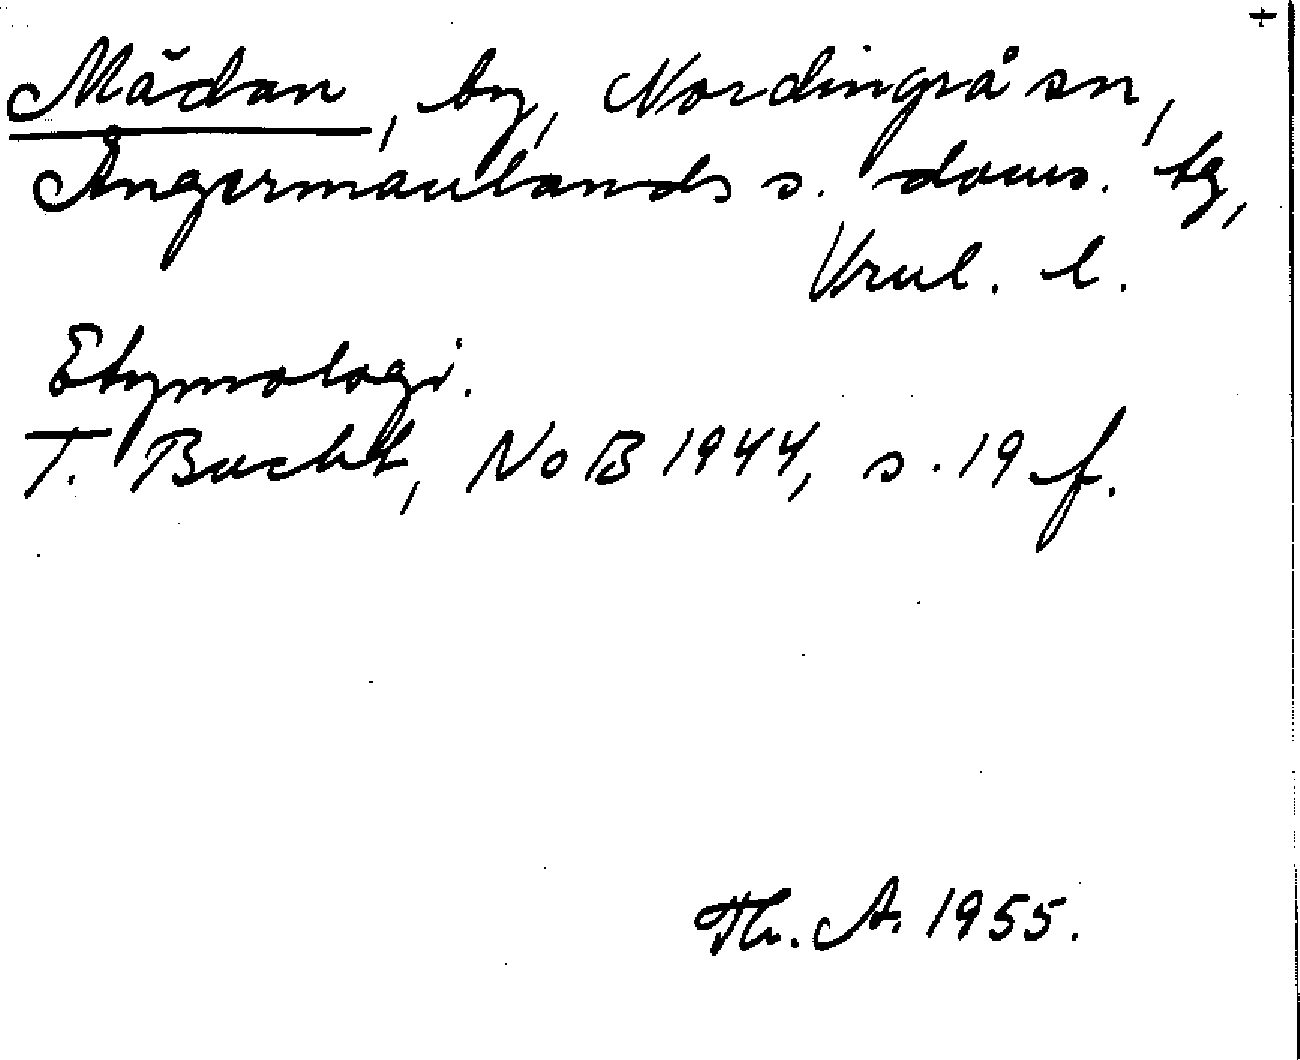 +
Mådan, by, Nordingrå sn,
Ångermanlands s. doms. tg,
Vrnl. l.
Etymologi.
T. Bucht, NoB 1944, s. 19 f.
Th. A. 1955.